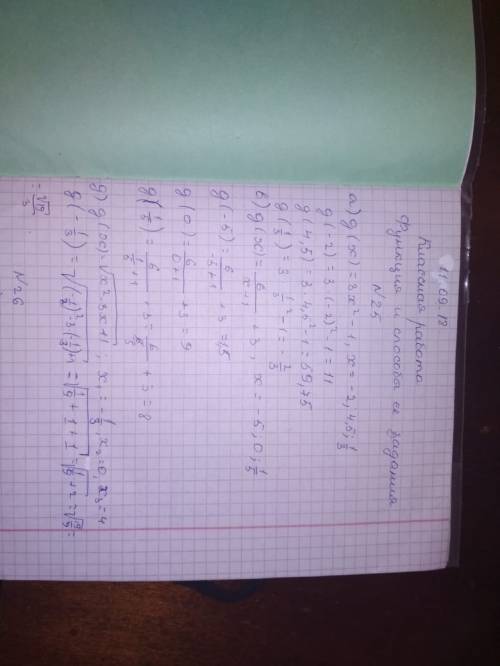 11.09.18
Классная работа
Функция и способы её задания
№25
а) g(x) = 3x² - 1, x = -2, 4,5; 1/3
g(-2) = 3·(-2)² - 1 = 11
g(4,5) = 3·4,5² - 1 = 59,75
g(1/3) = 3·1/3² - 1 = -2/3
б) g(x) = 6/(x+1) + 3, x = -5; 0; 1/5
g(-5) = 6/(-5+1) + 3 = 1,5
g(0) = 6/(0+1) + 3 = 9
g(1/5) = 6/(1/5+1) + 3 = 6/(6/5) + 3 = 8
g(x) = √(x²-3x+1); x₁ = -1/3 x₂=0, x₃=4
g(-1/3) = √((-1/3)²-3·(-1/3)+1) = √(1/9+1+1) = √(1/9+2) = √(19/9) =
= √19/3
№26